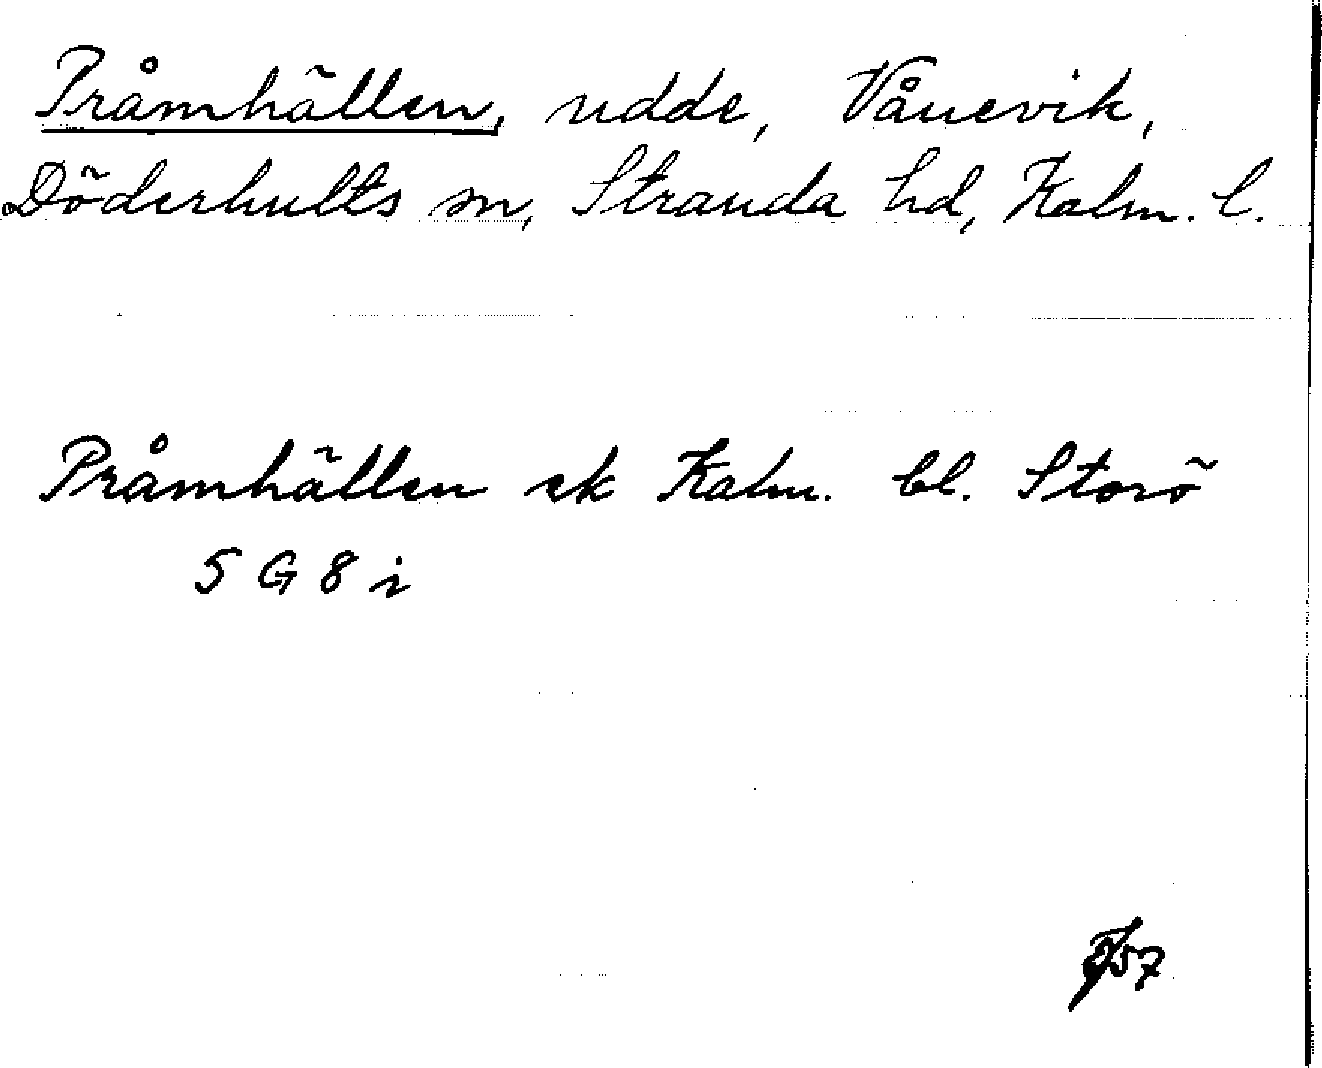 Pråmhällen, udde, Vånevik,
Döderhults sn, Stranda hd, Kalm. l.
Pråmhällen ek Kalm. bl. Storö
5 G 8 i